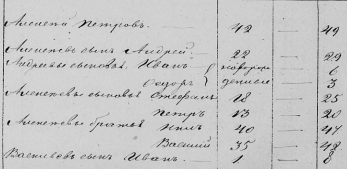 Алексѣй Петровъ. 42 — 49
Алексѣевъ сынъ Андрей 22 — 29
Андреевы сыновья Иванъ новорож 6
Ѳедоръ денные — 3
Алексѣевы сыновья Стефанъ 18 — 25
Петръ 13 — 20
Алексѣевы братья 40 — 47
Василий 35 — 42
Васильевъ сынъ Иванъ. 1 — 8